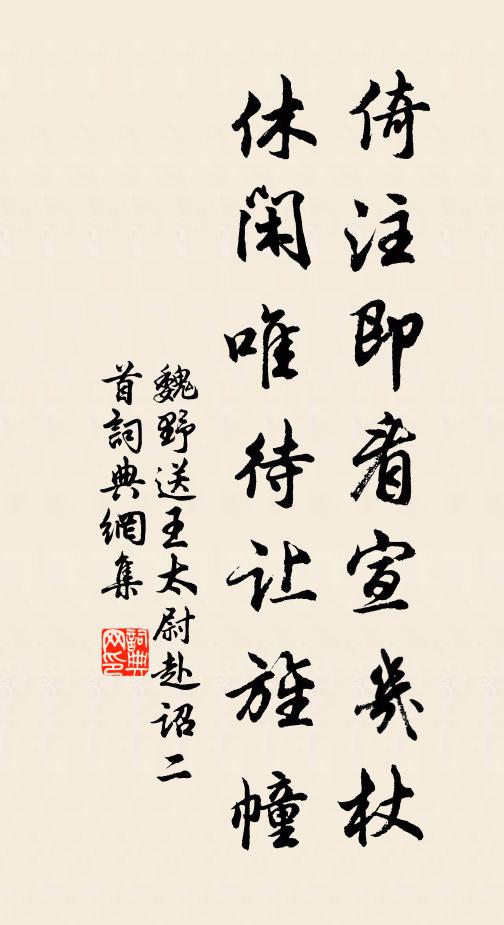 倚注即看宣几杖
休闲唯待让旌幢
魏野送王太尉赴詔二
首詞典網集
詞典
网印